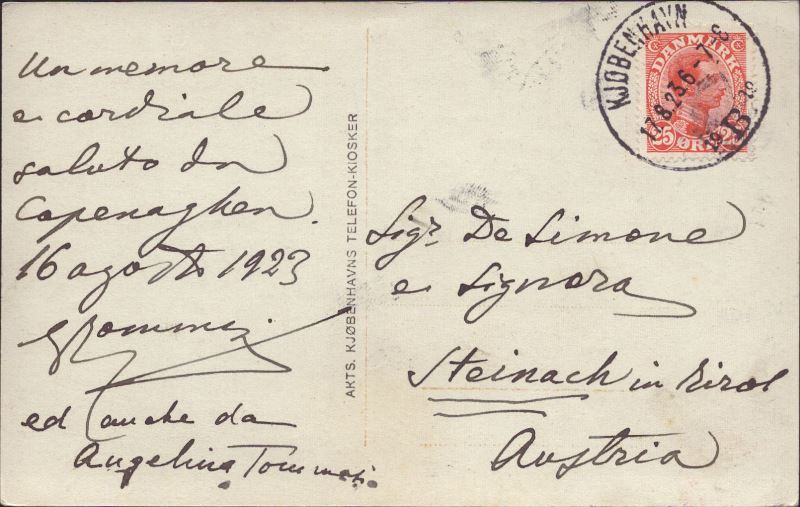 Un memore
e cordiale
saluto da
Copenaghen.
16 agosto 1923
ed anche da
Angelina Tommasi
AKTS. KJØBENHAVNS TELEFON-KIOSKER
KJØBENHAVN
17.8.23.6-7.S
B
DANMARK
25 ØRE 25
Sigr. De Simone
e Signora
Steinach in Tirol
Austria